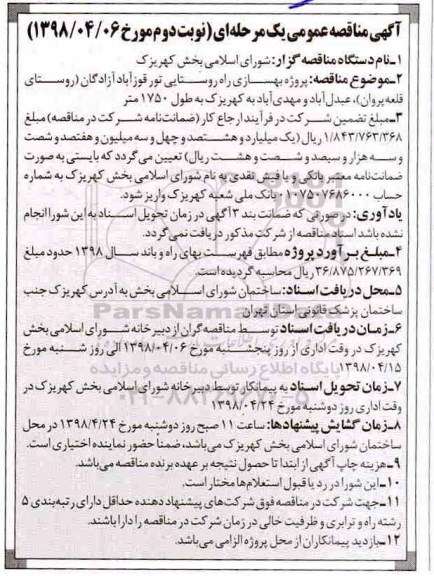 آگهی مناقصه عمومی یک مرحله‌ای (نوبت دوم مورخ ۱۳۹۸/۰۴/۰۶)
۱-نام دستگاه مناقصه گزار: شورای اسلامی بخش کهریزک
۲-موضوع مناقصه: پروژه بهسازی راه روستایی تور قوزآباد آزادگان (روستای
قلعه پروان)، عبدل‌آباد و مهدی‌آباد به کهریزک به طول ۱۷۵۰ متر
۳-مبلغ تضمین شرکت در فرآیند ارجاع کار (ضمانت‌نامه شرکت در مناقصه) مبلغ
۱/۸۴۳/۷۶۳/۳۶۸ ریال (یک میلیارد و هشتصد و چهل و سه میلیون و هفتصد و شصت
و سه هزار و سیصد و شصت و هشت ریال) تعیین می‌گردد که بایستی به صورت
ضمانت‌نامه معتبر بانکی و یا فیش نقدی به نام شورای اسلامی بخش کهریزک به شماره
حساب ۰۱۰۷۵۰۷۶۸۶۰۰۰ بانک ملی شعبه کهریزک واریز شود.
یادآوری: در صورتی که ضمانت بند ۳ آگهی در زمان تحویل اسناد به این شورا انجام
نشده باشد اسناد مناقصه از شرکت مذکور دریافت نمی‌گردد.
۴-مبلغ برآورد پروژه مطابق فهرست بهای راه و باند سال ۱۳۹۸ حدود مبلغ
۳۶/۸۷۵/۲۶۷/۳۶۹ ریال محاسبه گردیده است.
۵-محل دریافت اسناد: ساختمان شورای اسلامی بخش به آدرس کهریزک جنب
ساختمان پزشکی قانونی استان تهران
۶-زمان دریافت اسناد توسط مناقصه گران از دبیرخانه شورای اسلامی بخش
کهریزک در وقت اداری از روز پنجشنبه مورخ ۱۳۹۸/۰۴/۰۶ الی روز شنبه مورخ
۱۳۹۸/۰۴/۱۵
۷-زمان تحویل اسناد به پیمانکار توسط دبیرخانه شورای اسلامی بخش کهریزک در
وقت اداری روز دوشنبه مورخ ۱۳۹۸/۰۴/۲۴
۸-زمان گشایش پیشنهادها: ساعت ۱۱ صبح روز دوشنبه مورخ ۱۳۹۸/۴/۲۴ در محل
ساختمان شورای اسلامی بخش کهریزک می‌باشد، ضمناً حضور نماینده اختیاری است.
۹-هزینه چاپ آگهی از ابتدا تا حصول نتیجه بر عهده برنده مناقصه می‌باشد.
۱۰-این شورا در رد یا قبول استعلام‌ها مختار است.
۱۱-جهت شرکت در مناقصه فوق شرکت‌های پیشنهاد دهنده حداقل دارای رتبه‌بندی ۵
رشته راه و ترابری و ظرفیت خالی در زمان شرکت در مناقصه را دارا باشند.
۱۲-بازدید پیمانکاران از محل پروژه الزامی می‌باشد.